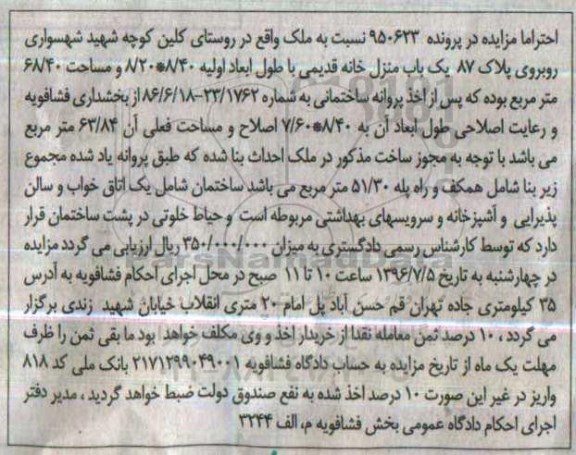 احتراما مزایده در پرونده ۹۵۰۶۲۳ نسبت به ملک واقع در روستای کلین کوچه شهید شهسواری
روبروی پلاک ۸۷ یک باب منزل خانه قدیمی با طول ابعاد اولیه ۸/۴۰*۸/۲۰ و مساحت ۶۸/۴۰
متر مربع بوده که پس از اخذ پروانه ساختمانی به شماره ۲۳/۱۷۶۲-۸۶/۶/۱۸ از بخشداری فشافویه
و رعایت اصلاحی طول ابعاد آن به ۸/۴۰*۷/۶۰ اصلاح و مساحت فعلی آن ۶۳/۸۴ متر مربع
می باشد با توجه به مجوز ساخت مذکور در ملک احداث بنا شده که طبق پروانه یاد شده مجموع
زیر بنا شامل همکف و راه پله ۵۱/۳۰ متر مربع می باشد ساختمان شامل یک اتاق خواب و سالن
پذیرایی و آشپزخانه و سرویسهای بهداشتی مربوطه است و حیاط خلوتی در پشت ساختمان قرار
دارد که توسط کارشناس رسمی دادگستری به میزان ۳۵۰/۰۰۰/۰۰۰ ریال ارزیابی می گردد مزایده
در چهارشنبه به تاریخ ۱۳۹۶/۷/۵ ساعت ۱۰ تا ۱۱ صبح در محل اجرای احکام فشافویه به آدرس
۳۵ کیلومتری جاده تهران قم حسن آباد پل امام ۲۰ متری انقلاب خیابان شهید زندی برگزار
می گردد ، ۱۰ درصد ثمن معامله نقدا از خریدار اخذ و وی مکلف خواهد بود ما بقی ثمن را ظرف
مهلت یک ماه از تاریخ مزایده به حساب دادگاه فشافویه ۲۱۷۱۲۹۹۰۴۹۰۰۱ بانک ملی کد ۸۱۸
واریز در غیر این صورت ۱۰ درصد اخذ شده به نفع صندوق دولت ضبط خواهد گردید ، مدیر دفتر
اجرای احکام دادگاه عمومی بخش فشافویه م، الف ۳۲۴۴